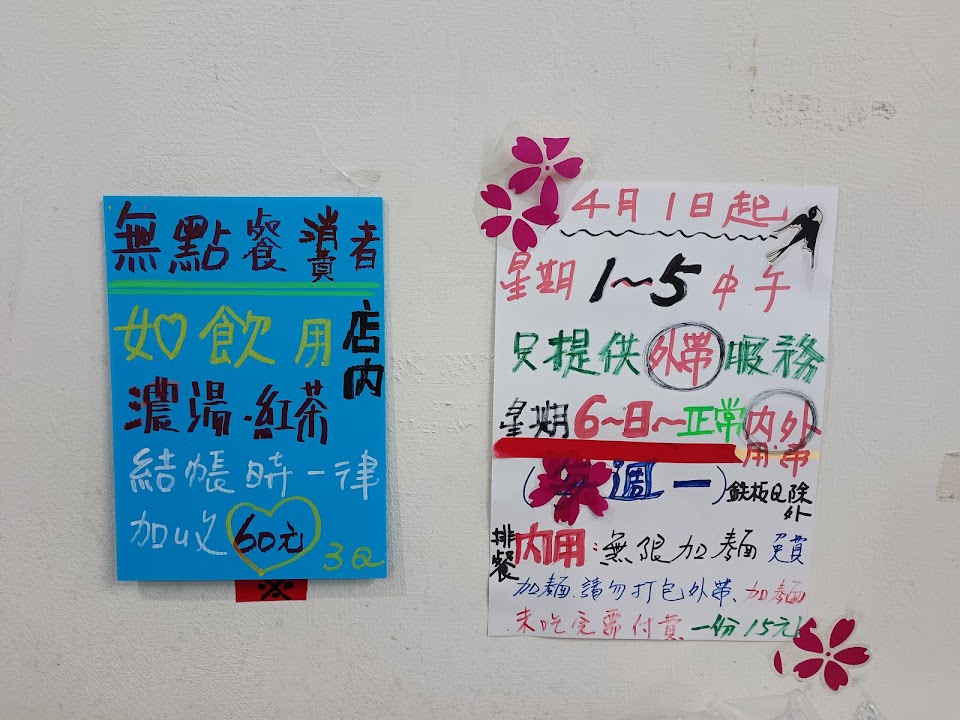 無點餐消費者
如飲用店內
濃湯.紅茶
結帳時一律
加收60元
3Q
※
4月1日起
星期1~5中午
只提供外帶服務
星期6~日~正常內用.外帶
(每週一)鉄板Q除外
排餐內用:無限加麵
加麵.請勿打包外帶、加麵
未吃完需付費、一份15元